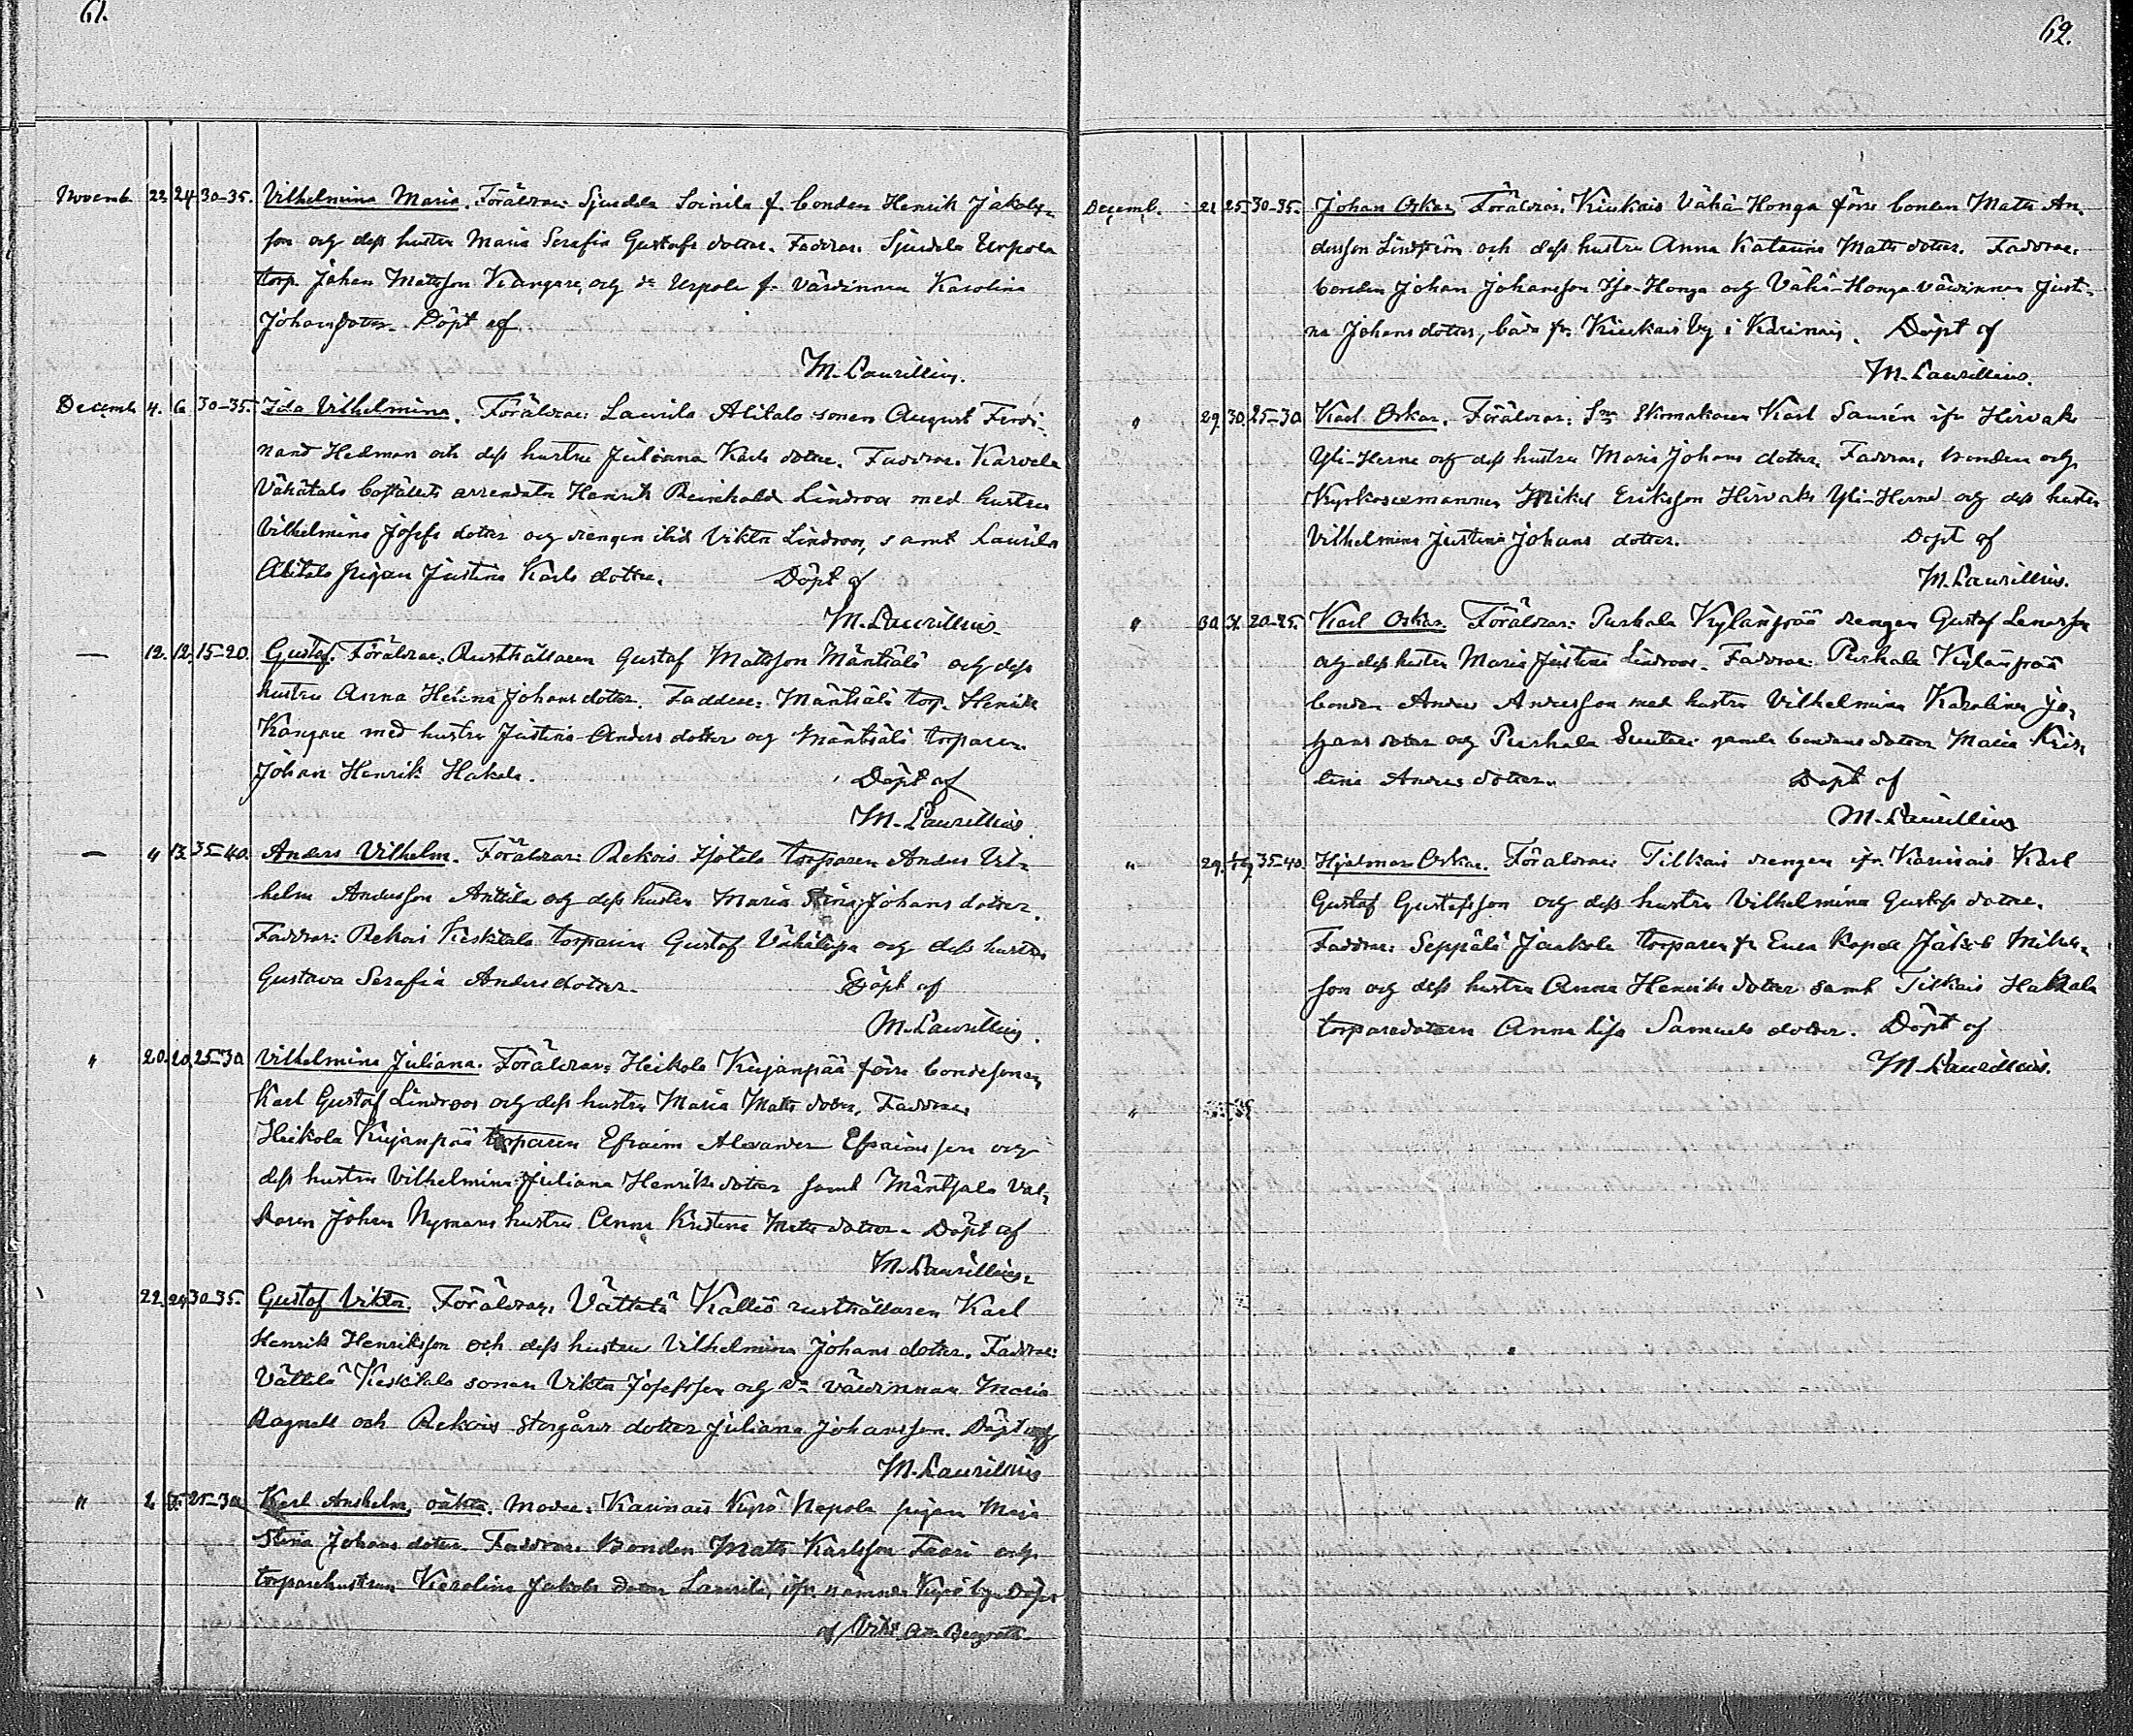 61.
Novemb. 22. 24. 30-35. Vilhelmina Maria. Föräldrar: Sjuddla Soinila f. bonden Henrik Jakobs-
son och dess hustru Maria Serafia Gustafs dotter. Faddrar: Sjuddla Urpola
torp. Johan Mattsson Kangare, och Urpola f. värdinnan Karolina
Johansdotter. Döpt af
M. Laurillius.
Decemb. 4. 6. 30-35. Ida Vilhelmina. Föräldrar: Laurila Alitalo sonen August Ferdi-
nand Hedman och dess hustru Juliana Karls dotter. Faddrar: Karvela
Vähätalo boställets arrendator Henrik Reinhold Lindroos med hustru
Vilhelmina Josefs dotter och drengen ibid. Viktor Lindroos, samt Laurila
Alitalo pigan Justina Karls dotter. Döpt af
M. Laurillius.
— 12. 12. 15-20. Gustaf. Föräldrar: Rusthållaren Gustaf Mattsson Mäntsälä och dess
hustru Anna Helena Johansdotter. Faddrar: Mäntsälä torp. Henrik
Kangare med hustru Justina Anders dotter och Mäntsälä torparen
Johan Henrik Hakala. Döpt af
M. Laurillius.
— " 13. 35-40. Anders Vilhelm. Föräldrar: Rekois Isotalo torparen Anders Vil-
helm Andersson Anttila och dess hustru Maria Stina Johans dotter.
Faddrar: Rekois Keskitalo torparen Gustaf och dess hustru
Gustava Serafia Andersdotter. Döpt af
M. Laurillius.
" 20. 20. 25-30. Vilhelmina Juliana. Föräldrar: Heikola Kujanpää förre bondesonen
Karl Gustaf Lindroos och dess hustru Maria Matts dotter. Faddrar:
Heikola Kujanpää torparen Efraim Alexander Efraimsson och
dess hustru Vilhelmina Juliana Henriks dotter samt Mäntsälä
Johan Nymans hustru Anna Kristina Matts dotter. Döpt af
M. Laurillius.
22. 24. 30-35. Gustaf Viktor. Föräldrar: Vättelä Kallio rusthållaren Karl
Henrik Henriksson och dess hustru Vilhelmina Johans dotter. Faddrar:
Vättelä Keskitalo sonen Viktor Josefsson och värdinnan Maria
Ragnell och Rekois Storgårds dotter Juliana Johansson. Döpt af
M. Laurillius
" 25-30. Karl Anshelm, oäkta. Moder: Karinais Kyrö Nepola pigan Maja
Stina Johans dotter. Faddrar: Bonden Matts Karlsson och
torparehustrun Karolina Jakobs dotter Laurila, ifr. Kyrö by. Döpt
af
62.
Decemb. 21. 25. 30-35. Johan Oskar. Föräldrar: Kiukais Vähä-Honga förre bonden Matts An-
dersson Lindström och dess hustru Anna Katarina Matts dotter. Faddrar:
bonden Johan Johansson Iso-Honga och Vähä-Honga värdinnan Justi-
na Johans dotter, båda fr. Kiukais by i Karinais. Döpt af
M. Laurillius.
" 29. 30. 25-30. Karl Oskar. Föräldrar: Skomakaren Karl Saurén ifr. Hirvaks
Yli-Herne och dess hustru Maria Johans dotter. Faddrar: bonden och
Kyrkosexmannen Mikel Eriksson Hirvaks Yli-Herne och dess hustru
Vilhelmina Justina Johans dotter. Döpt af
M. Laurillius.
" 30. 31. 20-25. Karl Oskar. Föräldrar: Purhala Kylänpää drengen Gustaf
och dess hustru Maria Justina Lindroos. Faddrar: Purhala Kylänpää
bonden Anders Andersson med hustru Vilhelmina Karolina Jo-
hans dotter och Purhala gamla bondens dotter Maria Kris-
tina Anders dotter. Döpt af
M. Laurillius
" 29. 35-40. Hjalmar Oskar. Föräldrar: Tilkais drengen ifr. Karinais Karl
Gustaf Gustafsson och dess hustru Vilhelmina Gustafs dotter.
Faddrar: Seppälä Jaakola torparen Jakob Mikels-
son och dess hustru Anna Henriks dotter samt Tilkais Hakkala
torparedottern Anna Lisa Samuels dotter. Döpt af
M. Laurillius.
"